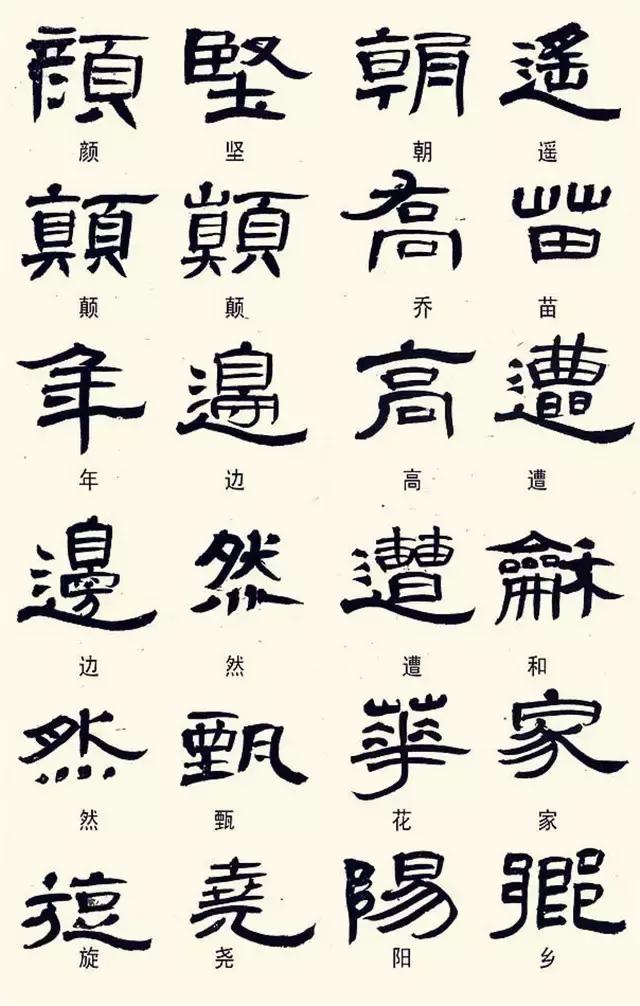 顔 堅 朝 遙
颜 坚 朝 遥
顛 巔 喬 苗
颠 颠 乔 苗
年 邊 高 遭
年 边 高 遭
邊 然 遭 龢
边 然 遭 和
然 甄 華 家
然 甄 花 家
旋 堯 陽 鄉
旋 尧 阳 乡